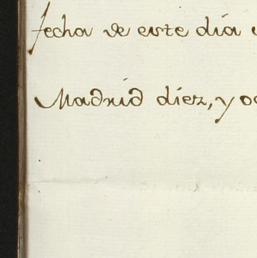 fecha de este dia
Madrid diez, y oc